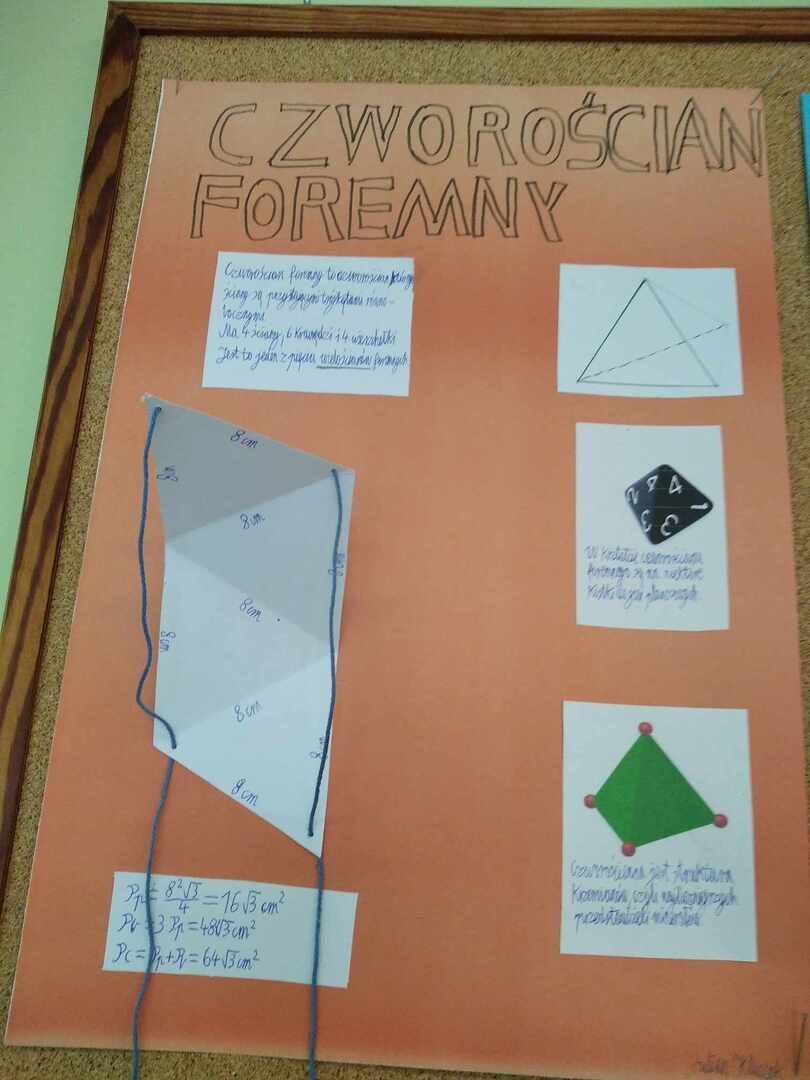 CZWOROŚCIAŃ
FOREMNY
Czworościan foremny to czworościan którego
ściany są przystającymi trójkątami równo-
bocznymi
Ma 4 ściany, 6 krawędzi i 4 wierzchołki
Jest to jeden z pięciu wielościanów foremnych.
8 cm
8 cm
8 cm
8 cm
8 cm
8 cm
8 cm
8 cm
2 4 4
3 3 1
W kształcie czworościanu
foremnego są na niektóre
kostki do gier planszowych.
Czworościana jest struktura
krzemianów, czyli najliczniejszych
przedstawicieli minerałów.
Pp = 8²√3/4 = 16√3 cm²
Pb = 3 Pp = 48√3 cm²
Pc = Pp + Pb = 64√3 cm²